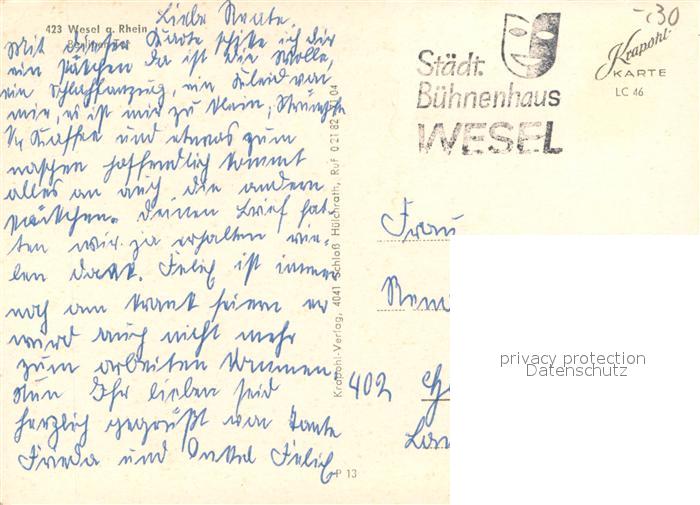 423 Wesel a. Rhein
Liebe Renate.
Mit dieser Karte schike ich dir
ein Päkchen da ist die Wolle,
ein Schlaffanzug, ein Kleid von
mir, es ist mir zu klein, Strümpfe
Kaffee und etwas zum
naschen hoffendlich kommt
alles an auch die andern
Päkchen. Deinen Brief hat-
ten wir ja erhalten vie-
len dank. Felix ist immer
noch am krank feiern er
wird auch nicht mehr
zum arbeiten kommen.
Nun Ihr lieben seid
herzlich gegrüßt von Tante
Frieda und Onkel Felix
Krapohl-Verlag, 4041 Schloß Hülchrath, Ruf 0 21 82 04
P 13
Städt.
Bühnenhaus
WESEL
-,30
Krapohl-
KARTE
LC 46
Frau
402
privacy protection
Datenschutz